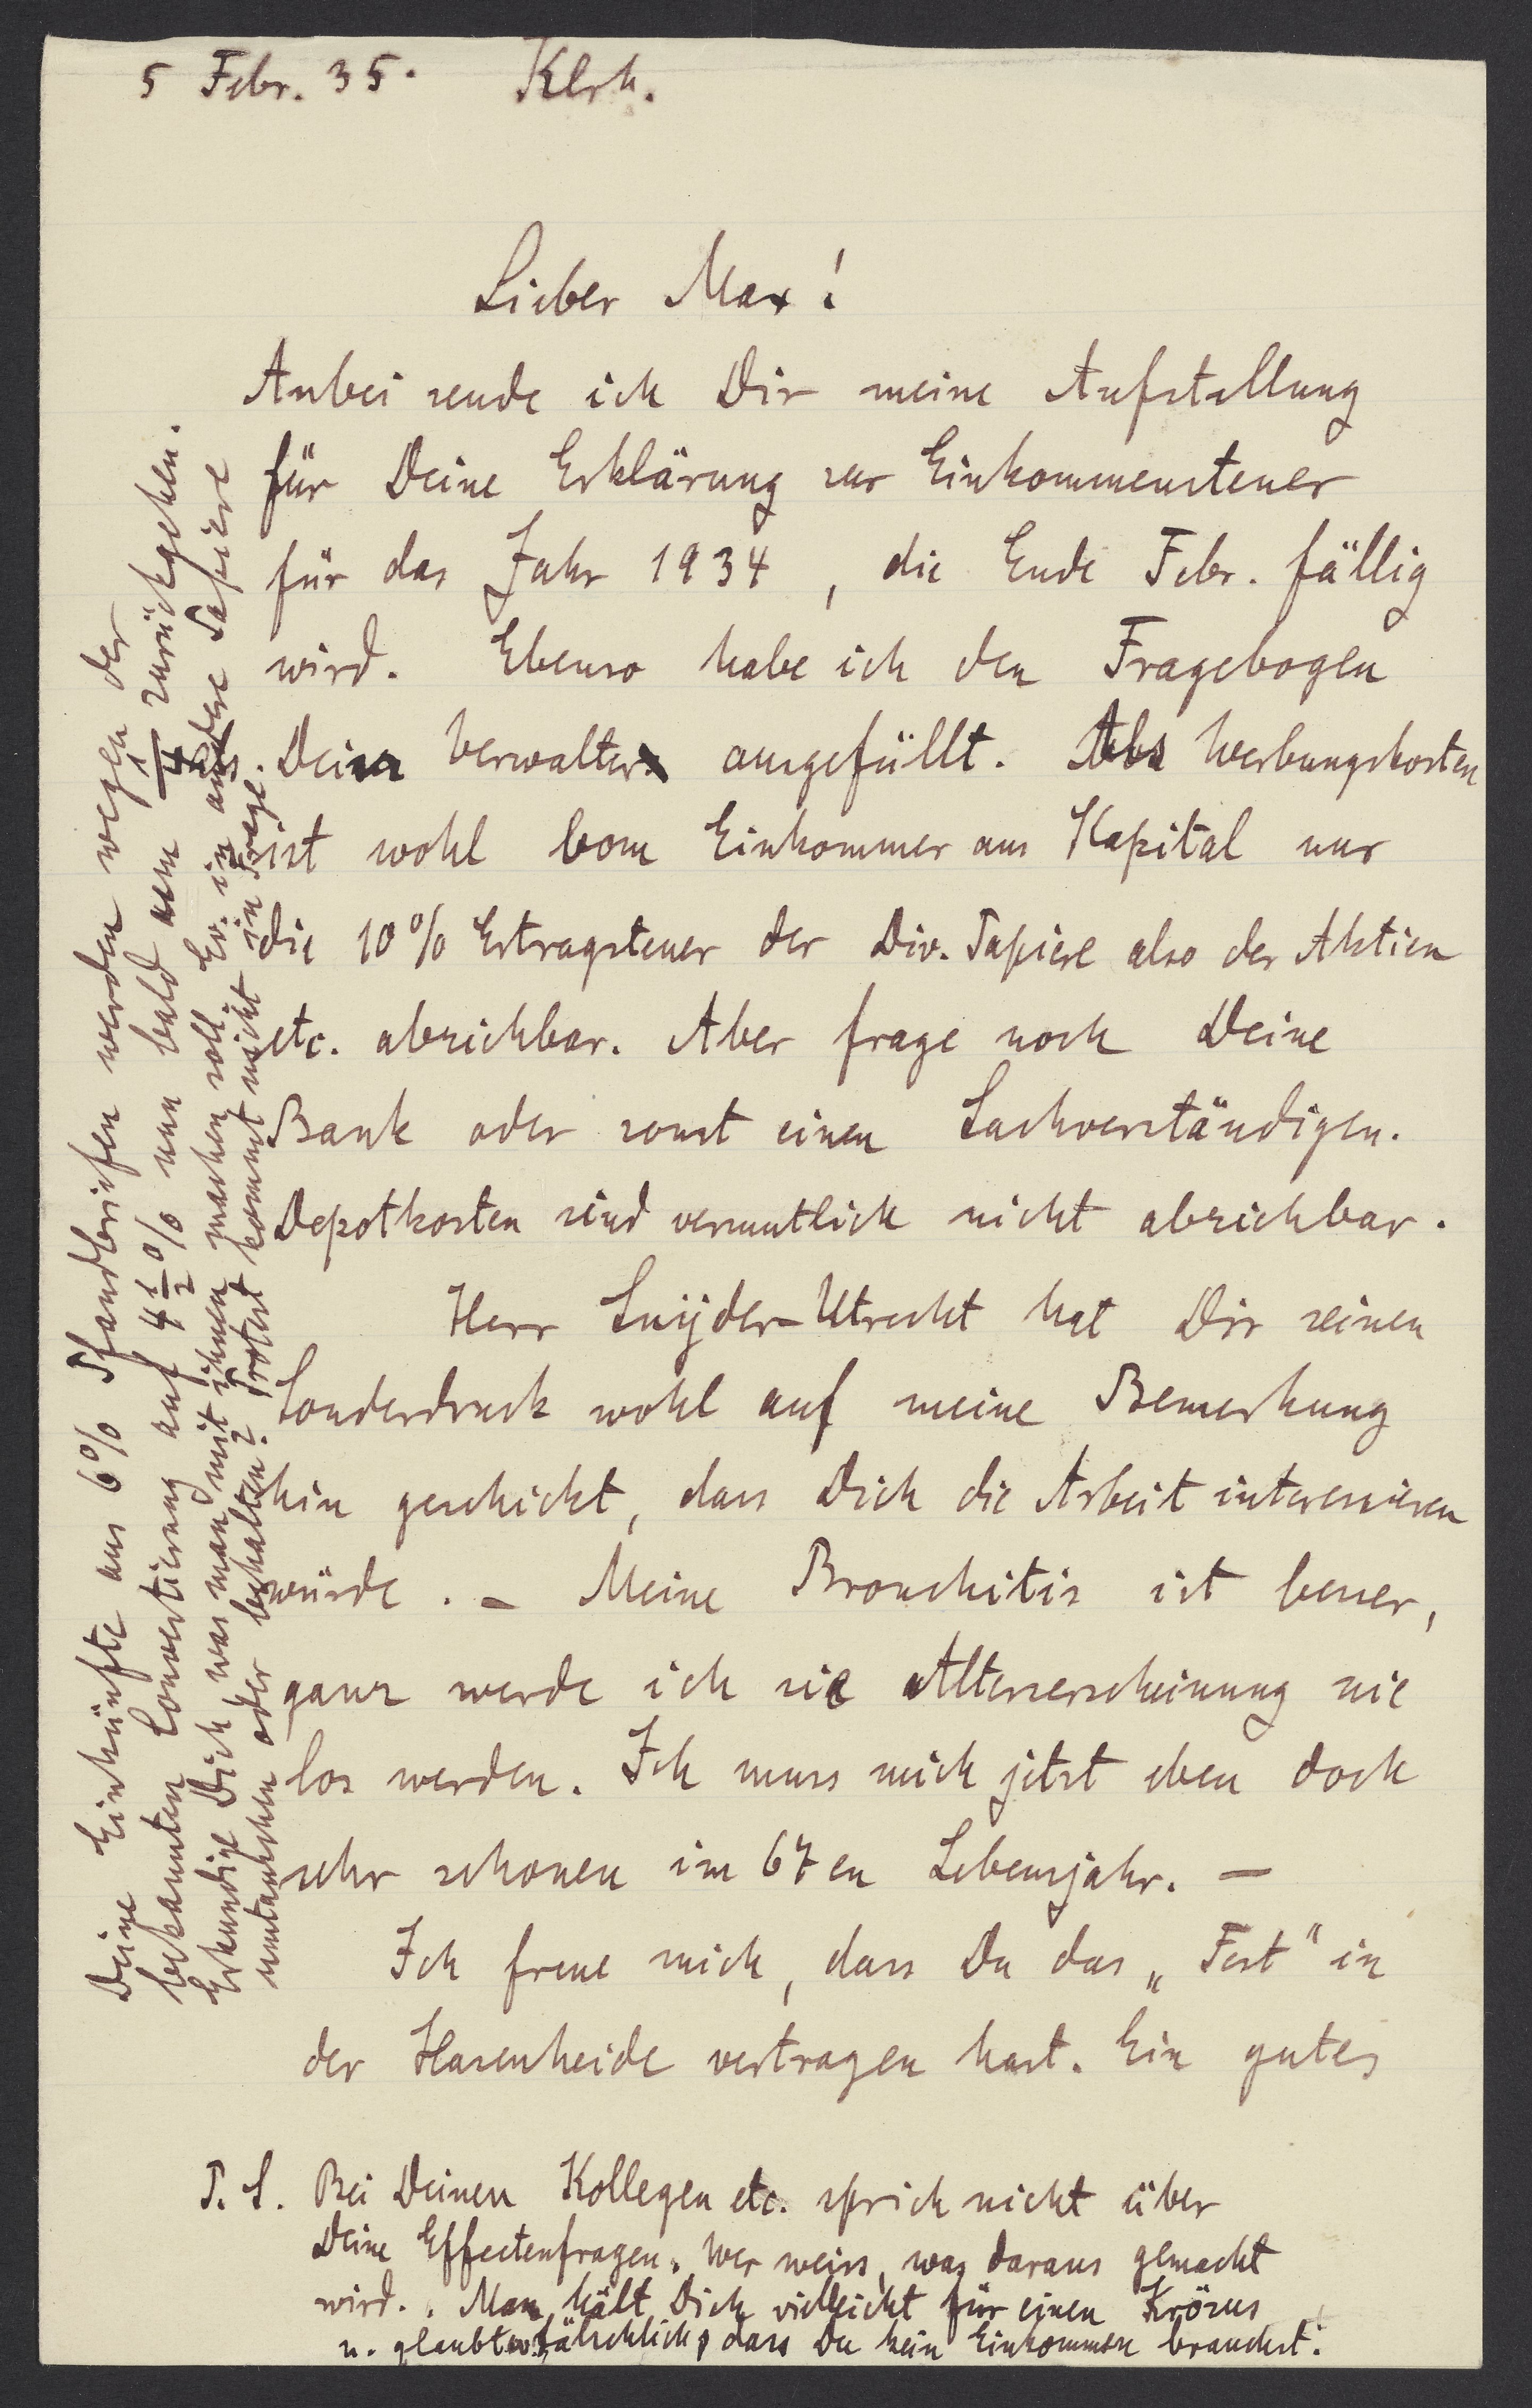 5 Febr. 35. Klrh.
Lieber Max!
Anbei sende ich Dir meine Aufstellung
für Deine Erklärung zur Einkommensteuer
für das Jahr 1934, die Ende Febr. fällig
wird. Ebenso habe ich den Fragebogen
Dein Verwalter ausgefüllt. Als Werbungskosten
ist wohl vom Einkommen aus Kapital nur
die 10% Ertragsteuer der Div. Papiere also der Aktien
etc. abziehbar. Aber frage noch Deine
Bank oder sonst einen Sachverständigen.
Depotkosten sind vermutlich nicht abziehbar.
Herr Snijder-Utrecht hat Dir seinen
Sonderdruck wohl auf meine Bemerkung
hin geschickt, dass Dich die Arbeit interessieren
würde. – Meine Bronchitis ist besser,
ganz werde ich sie Alterserscheinung nie
los werden. Ich muss mich jetzt eben doch
sehr schonen im 67en Lebensjahr. –
Ich freue mich, dass Du das „Fest" in
der Hasenheide vertragen hast. Ein gutes
P. S. Bei Deinen Kollegen etc. sprich nicht über
Deine Effectenfragen. Wer weiss, was daraus gemacht
wird. Man hält Dich vielleicht für einen Krösus
u. glaubt fälschlich, dass Du kein Einkommen brauchst.
Deine Einkünfte aus 6% Pfandbriefen werden wegen der
bekannten Convertierung auf 4 1/2 % nun bald um 1/4 zurückgehen.
Erkundige Dich was man mit ihnen machen soll. Ev. in andere Papiere
umtauschen oder behalten? Protest kommt nicht in Frage.